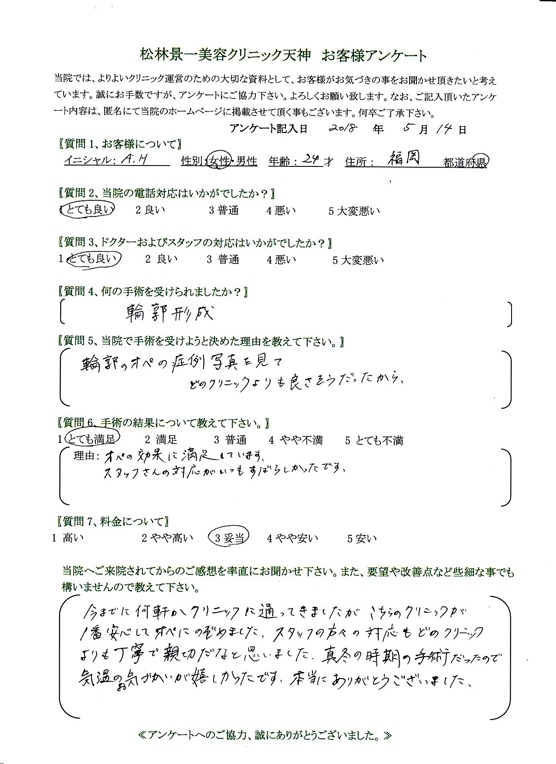 松林景一美容クリニック天神　お客様アンケート
当院では、よりよいクリニック運営のための大切な資料として、お客様がお気づきの事をお聞かせ頂きたいと考え
ています。誠にお手数ですが、アンケートにご協力下さい。よろしくお願い致します。なお、ご記入頂いたアンケ
ート内容は、匿名にて当院のホームページに掲載させて頂く事もございます。何卒ご了承下さい。
アンケート記入日　2018　年　5　月　14　日
〖質問1、お客様について〗
イニシャル：A.H　性別：女性・男性　年齢：24才　住所：　福岡　都道府県
〖質問2、当院の電話対応はいかがでしたか？〗
1 とても良い　2 良い　3 普通　4 悪い　5 大変悪い
〖質問3、ドクターおよびスタッフの対応はいかがでしたか？〗
1 とても良い　2 良い　3 普通　4 悪い　5 大変悪い
〖質問4、何の手術を受けられましたか？〗
輪郭形成
〖質問5、当院で手術を受けようと決めた理由を教えて下さい。〗
輪郭のオペの症例写真を見て
どのクリニックよりも良さそうだったから、
〖質問6、手術の結果について教えて下さい。〗
1 とても満足　2 満足　3 普通　4 やや不満　5 とても不満
理由：オペの効果に満足しています。
スタッフさんの対応がいつもすばらしかったです。
〖質問7、料金について〗
1 高い　2 やや高い　3 妥当　4 やや安い　5 安い
当院へご来院されてからのご感想を率直にお聞かせ下さい。また、要望や改善点など些細な事でも
構いませんので教えて下さい。
今までに何軒かクリニックに通ってきましたが こちらのクリニックが
1番安心してオペにのぞめました。スタッフの方々の対応もどのクリニック
よりも丁寧で親切だなと思いました。真冬の時期の手術だったので
気温のお気づかいが嬉しかったです。本当にありがとうございました。
≪アンケートへのご協力、誠にありがとうございました。≫